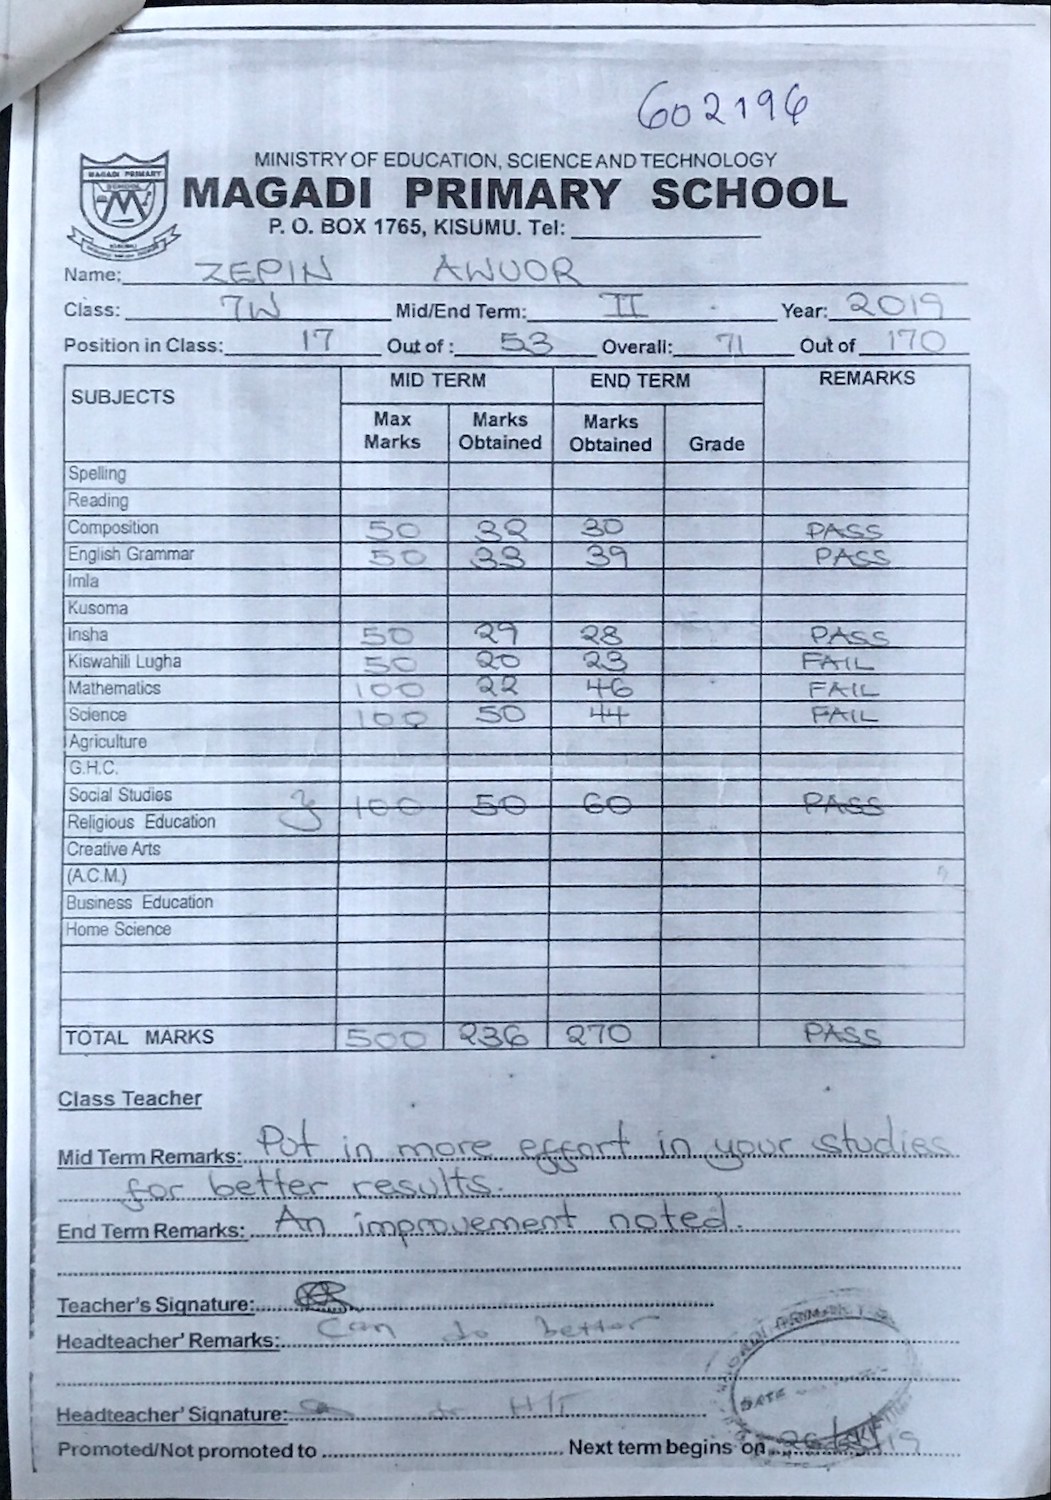 602196
MAGADI PRIMARY
SCHOOL
MINISTRY OF EDUCATION, SCIENCE AND TECHNOLOGY
MAGADI PRIMARY SCHOOL
P. O. BOX 1765, KISUMU. Tel:
Name: ZEPIN AWUOR
Class: 7W Mid/End Term: II Year: 2019
Position in Class: 17 Out of : 53 Overall: 71 Out of 170
SUBJECTS MID TERM END TERM REMARKS
Max Marks Marks Obtained Marks Obtained Grade
Spelling
Reading
Composition 50 32 30 PASS
English Grammar 50 33 39 PASS
Imla
Kusoma
Insha 50 29 28 PASS
Kiswahili Lugha 50 20 23 FAIL
Mathematics 100 22 46 FAIL
Science 100 50 44 FAIL
Agriculture
G.H.C.
Social Studies 100 50 60 PASS
Religious Education
Creative Arts
(A.C.M.)
Business Education
Home Science
TOTAL MARKS 500 236 270 PASS
Class Teacher
Mid Term Remarks: Put in more effort in your studies
for better results.
End Term Remarks: An improvement noted.
Teacher's Signature:
Headteacher' Remarks: Can do better
DATE
Headteacher' Signature: H/T
Promoted/Not promoted to Next term begins on